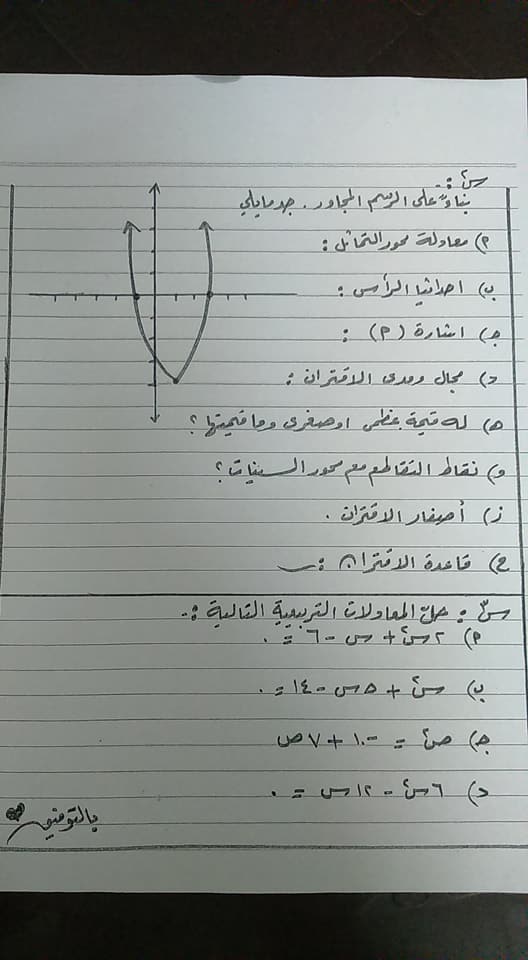 س١:
بناءً على الرسم المجاور. جد مايلي
٢) معادلة محور التماثل:
ب) احداثيا الرأس:
ج) اشارة (٢):
د) مجال ومدى الاقتران:
ه) له قيمة عظمى او صغرى وما قيمتها؟
و) نقاط التقاطع مع محور السينات؟
ز) أصفار الاقتران.
ح) قاعدة الاقتران:
س٢: حل المعادلات التربيعية التالية:
٢) ٢س² + س - ٦ = ٠
ب) س² + ٥س - ١٤ = ٠
ج) ص² = -١٠ + ٧ص
د) ٦س² - ١٢س = ٠
بالتوفيق